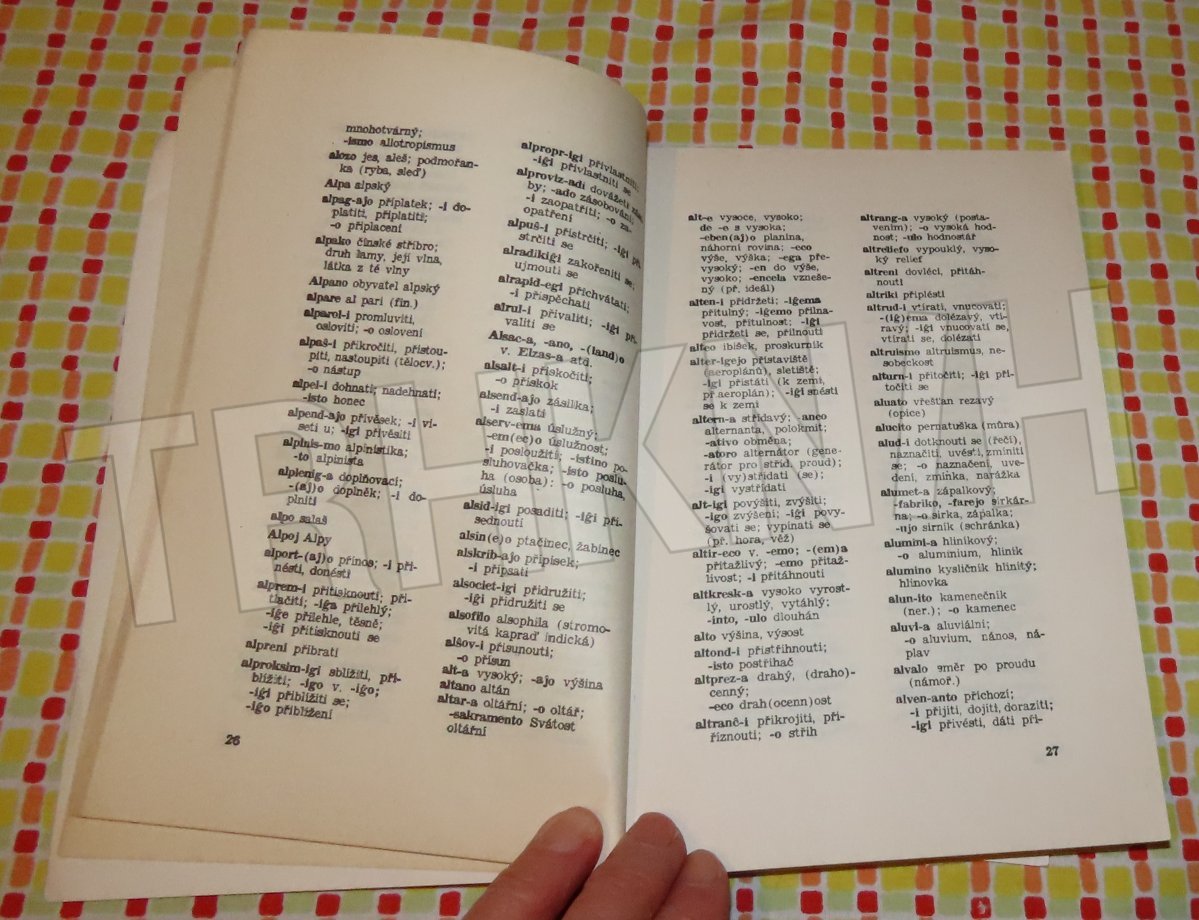 mnohotvárný;
-ismo allotropismus
alozo jes, aleš; podmořan-
ka (ryba, sleď)
Alpa alpský
alpag-ajo příplatek; -i do-
platiti, připlatiti;
-o připlacení
alpako čínské stříbro;
druh lamy, její vlna,
látka z té vlny
Alpano obyvatel alpský
alpare al pari (fin.)
alparol-i promluviti,
osloviti; -o oslovení
alpaŝ-i přikročiti, přistou-
piti, nastoupiti (tělocv.);
-o nástup
alpel-i dohnati; nadehnati;
-isto honec
alpend-ajo přívěsek; -i vi-
seti u; -igi přivěsiti
alpinis-mo alpinistika;
-to alpinista
alplenig-a doplňovací;
-(aj)o doplněk; -i do-
plniti
alpo salaš
Alpoj Alpy
alport-(aj)o přínos; -i při-
nésti, donésti
alprem-i přitisknouti, při-
tlačiti; -iĝa přilehlý;
-iĝe přilehle, těsně;
-iĝi přitisknouti se
alpreni přibrati
alproksim-igi sblížiti, při-
blížiti; -igo v. -iĝo;
-iĝi přiblížiti se;
-iĝo přiblížení
26
alpropr-igi přivlastniti;
-iĝi přivlastniti se
alproviz-adi dovážeti záso-
by; -ado zásobování;
-i zaopatřiti; -o za-
opatření
alpuŝ-i přistrčiti; -iĝi při-
strčiti se
alradikiĝi zakořeniti se;
ujmouti se
alrapid-egi přichvátati;
-i přispěchati
alrul-i přivaliti; -iĝi při-
valiti se
Alsac-a, -ano, -(land)o
v. Elzas-a atd.
alsalt-i přiskočiti;
-o přískok
alsend-ajo zásilka;
-i zaslati
alserv-ema úslužný;
-em(ec)o úslužnost;
-i posloužiti; -istino po-
sluhovačka; -isto poslu-
ha (osoba): -o posluha,
úsluha
alsid-igi posaditi; -iĝi při-
sednouti
alsin(e)o ptačinec, žabinec
alskrib-ajo přípisek;
-i připsati
alsociet-igi přidružiti;
-iĝi přidružiti se
alsofilo alsophila (stromo-
vitá kapraď indická)
alŝov-i přisunouti;
-o přísun
alt-a vysoký; -ajo výšina
altano altán
altar-a oltářní; -o oltář;
-sakramento Svátost
oltářní
alt-e vysoce, vysoko;
de -e s vysoka;
-eben(aj)o planina,
náhorní rovina; -eco
výše, výška; -ega pře-
vysoký; -en do výše,
vysoko; -encela vzneše-
ný (př. ideál)
alten-i přidržeti; -iĝema
přítulný; -iĝemo přilna-
vost, přítulnost; -iĝi
přidržeti se, přilnouti
alteo ibišek, proskurník
alter-igejo přístaviště
(aeroplánů), sletiště;
-igi přistáti (k zemi,
př.aeroplán); -iĝi snésti
se k zemi
altern-a střídavý; -anco
alternanta, polokmit;
-ativo obměna;
-atoro alternátor (gene-
rátor pro stříd. proud);
-i (vy)střídati (se);
-igi vystřídati
alt-igi povýšiti, zvýšiti;
-igo zvýšení; -iĝi povy-
šovati se; vypínati se
(př. hora, věž)
altir-eco v. -emo; -(em)a
přitažlivý; -emo přitaž-
livost; -i přitáhnouti
altkresk-a vysoko vyrost-
lý, urostlý, vytáhlý;
-into, -ulo dlouhán
alto výšina, výsost
altond-i přistřihnouti;
-isto postřihač
altprez-a drahý, (draho)-
cenný;
-eco drah(ocenn)ost
altranĉ-i přikrojiti, při-
říznouti; -o střih
altrang-a vysoký (posta-
vením); -o vysoká hod-
nost; -ulo hodnostář
altreliefo vypouklý, vyso-
ký relief
altreni dovléci, přitáh-
nouti
altriki připlésti
altrud-i vtírati, vnucovati;
-(iĝ)ema dolézavý, vtí-
ravý; -iĝi vnucovati se,
vtírati se, dolézati
altruismo altruismus, ne-
sobeckost
alturn-i přitočiti; -iĝi při-
točiti se
aluato vřešťan rezavý
(opice)
alucito pernatuška (můra)
alud-i dotknouti se (řečí),
naznačiti, uvésti, zmíniti
se; -o naznačení, uve-
dení, zmínka, narážka
alumet-a zápalkový;
-fabriko, -farejo sirkár-
na; -o sirka, zápalka;
-ujo sirník (schránka)
alumini-a hliníkový;
-o aluminium, hliník
alumino kysličník hlinitý;
hlinovka
alun-ito kamenečník
(ner.); -o kamenec
aluvi-a aluviální;
-o aluvium, nános, ná-
plav
alvalo směr po proudu
(námoř.)
alven-anto příchozí;
-i přijíti, dojíti, doraziti;
-igi přivésti, dáti při-
27
TRHKNIH